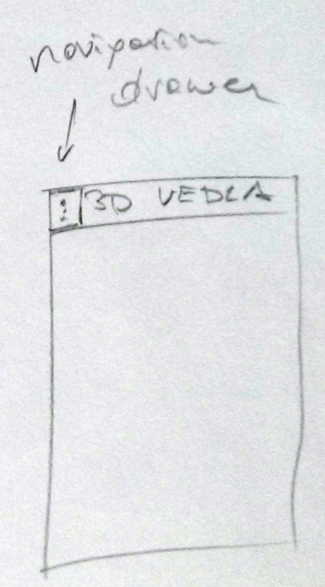 navigation
drawer
3D VEDLA